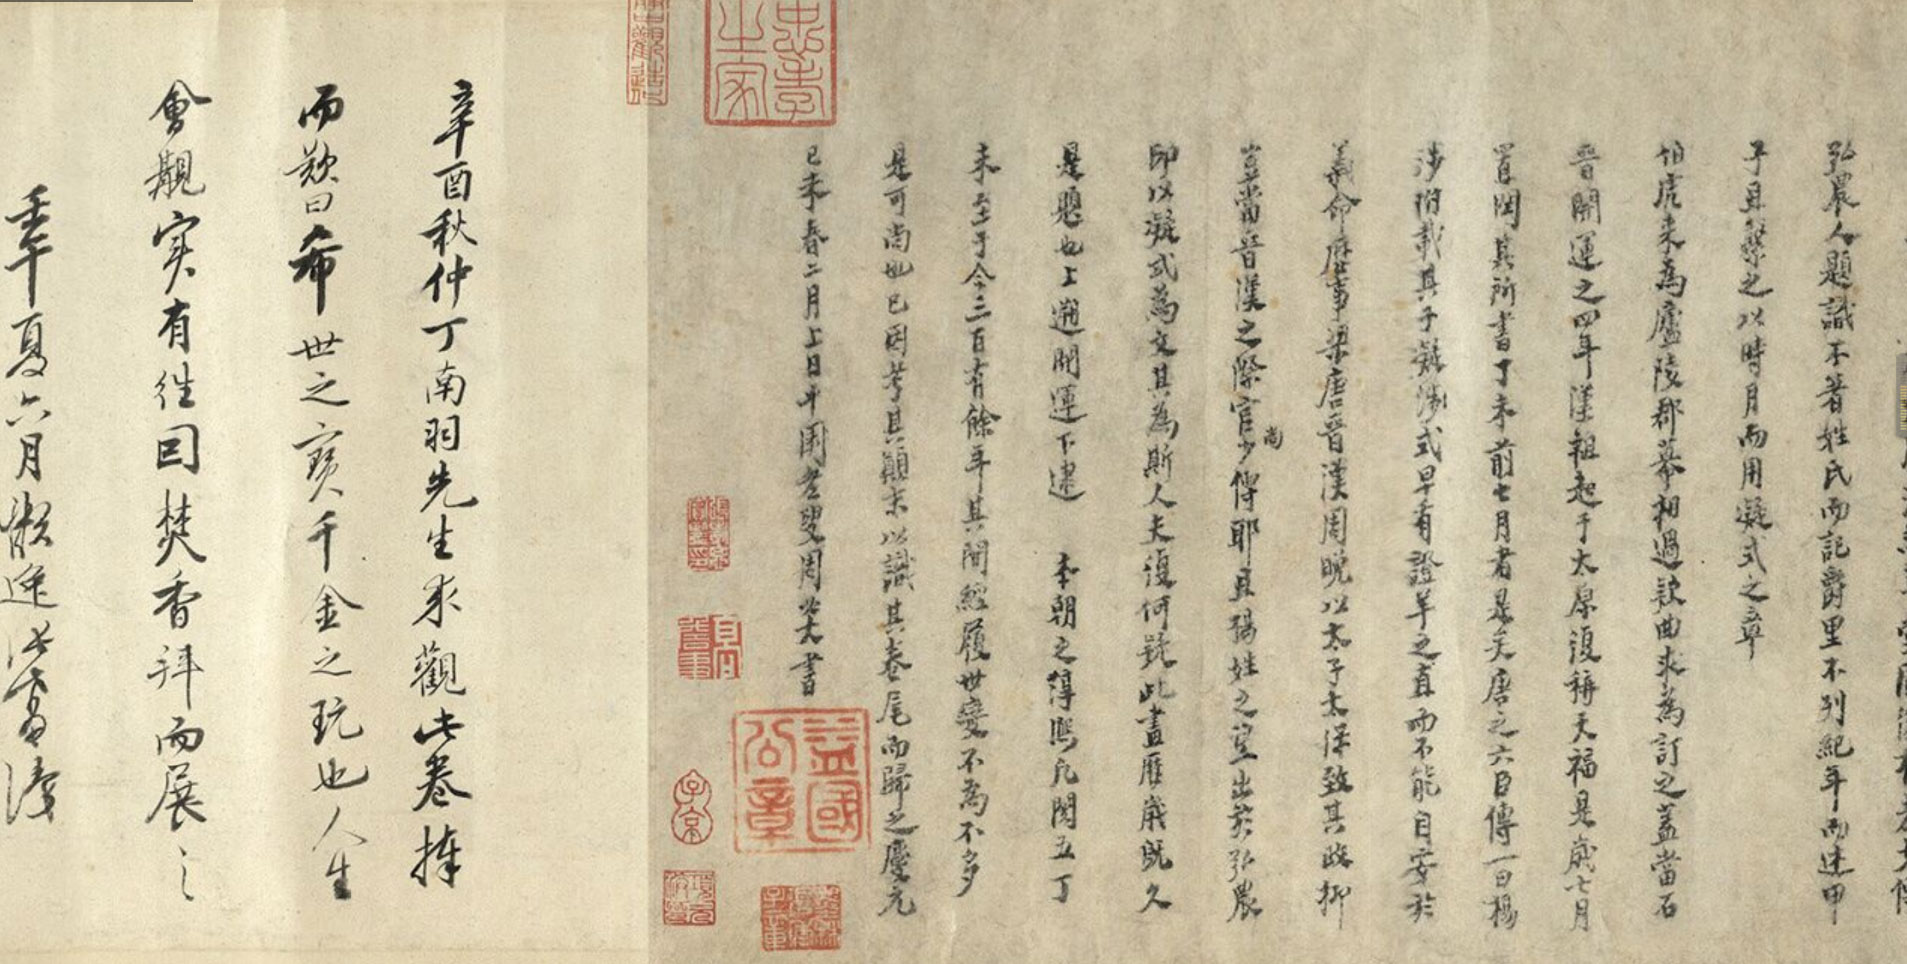 弘農人題識不著姓氏而記爵里不列紀年而述甲
子且繫之以時月而用凝式之章
伯虎来為廬陵郡幕相過款曲求為訂之蓋當石
晉開運之四年漢祖起于太原復稱天福是歲七月
置閏其所書丁未前七月者是矣唐之六臣傳一曰楊
涉附載其子凝式早有證羊之直而不能自安於
義命歷事梁唐晉漢周晚以太子太保致其政抑
豈當晉漢之際官尚少傅耶且楊姓之望出於弘農
印以凝式為文其為斯人夫復何疑此畫歷歲既久
是題也上遡開運下逮 本朝之淳熙凡閱五丁
未至于今三百有餘年其間經履世變不為不多
是可尚也已因考其顛末以識其卷尾而歸之慶元
己未春二月上日平園老叟周必大書
益國
公章
辛酉秋仲丁南羽先生求觀此卷捧
而歎曰希世之寶千金之玩也人生
會覯实有往因焚香拜而展之
壬午夏六月